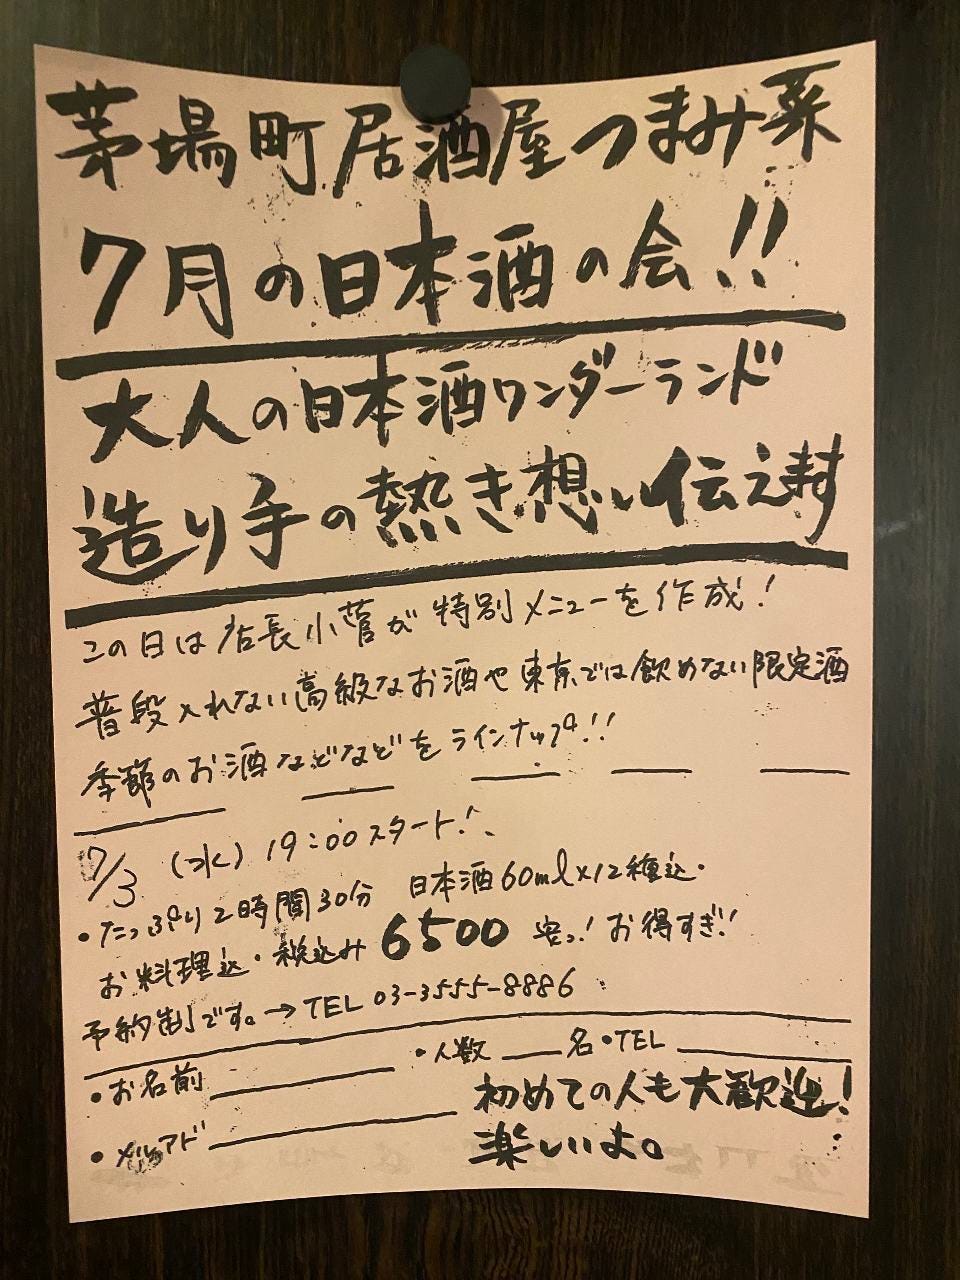 茅場町居酒屋つまみ菜
7月の日本酒の会!!
大人の日本酒ワンダーランド
造り手の熱き想い伝えます
この日は店長小菅が特別メニューを作成!
普段入れない高級なお酒や東京では飲めない限定酒
季節のお酒などなどをラインナップ!!
7/3 (水) 19:00スタート!
・たっぷり2時間30分 日本酒60ml×12種込・
お料理込・税込み6500 安っ! お得すぎ!
予約制です。→TEL 03-3555-8886
・人数 名・TEL
・お名前
初めての人も大歓迎!
・メルアド
楽しいよ。